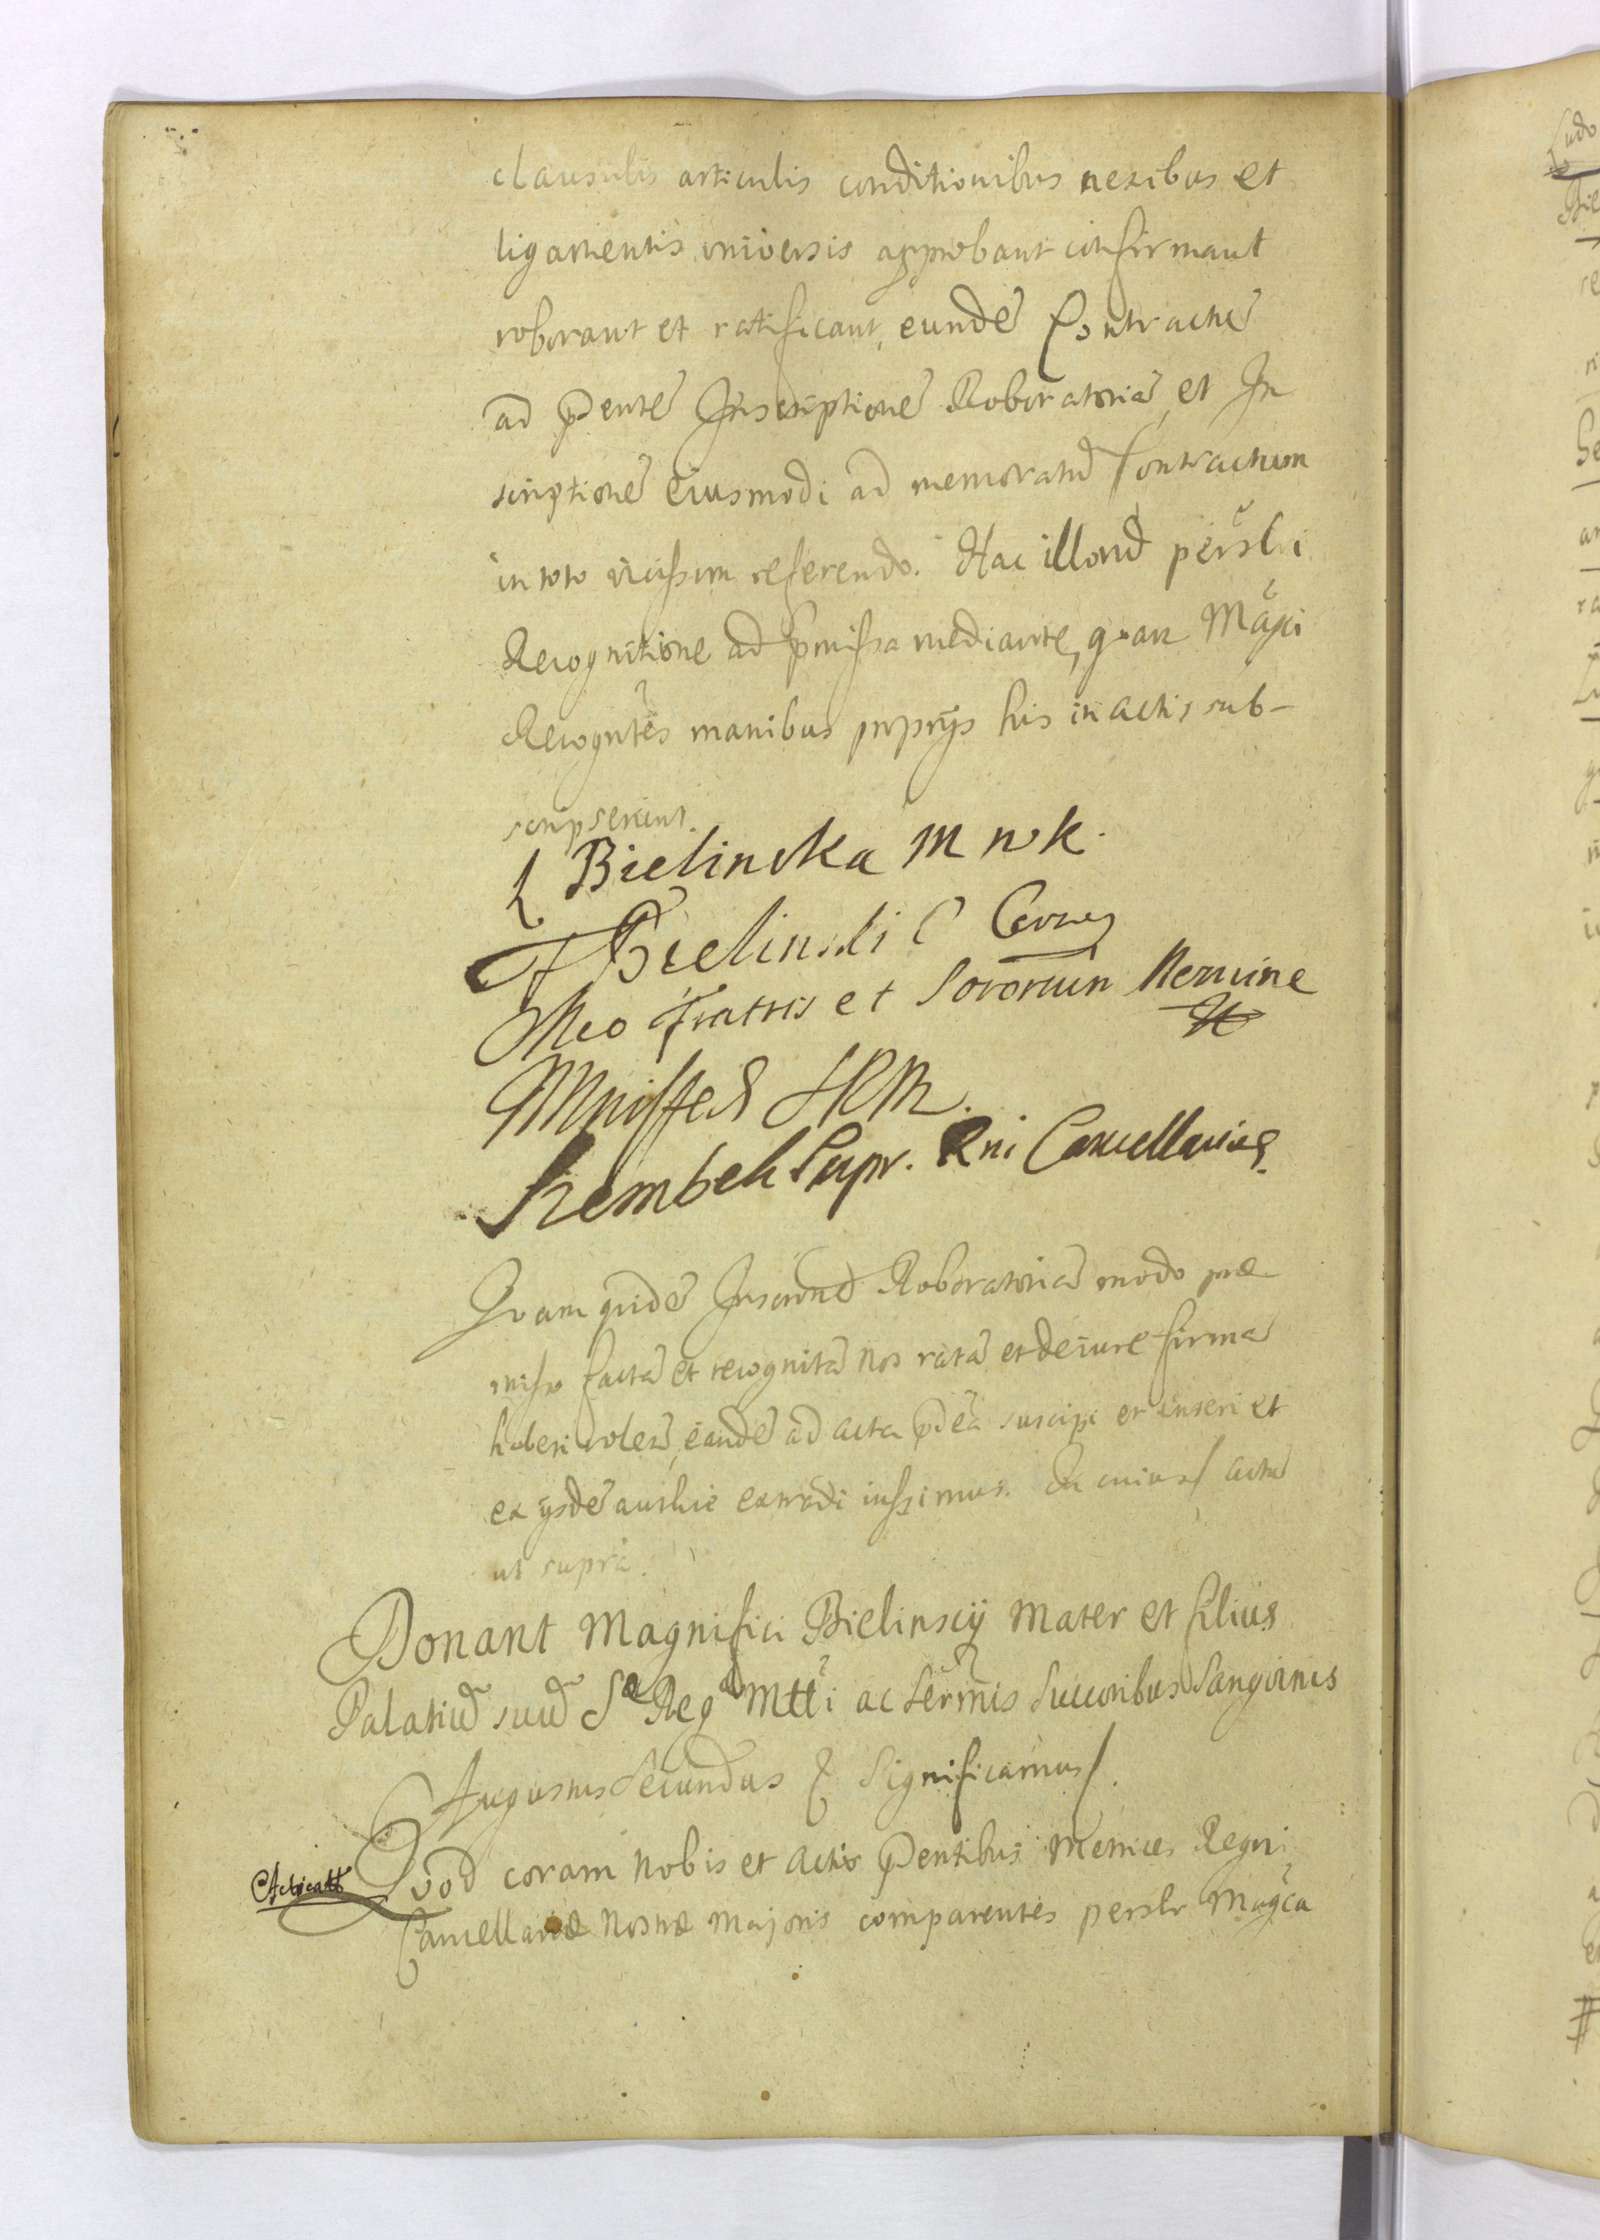 clausulis articulis conditionibus nexibus et
ligamentis universis approbant confirmant
roborant et ratificant, eundẽ Contractũ
ad p̃entẽ Inscriptionẽ Roboratoriã, et In
scriptionẽ eiusmodi ad memoratũ Contractum
in toto vicissim referendo. Hac illorũ persłi
Recognitione ad p̃missa mediante, quam Mãgci
Recogñtẽs manibus proprijs his in actis sub-
scripserunt.
L Bielinska M w k.
F Bielinski C
Meo Fratris et Sororum Nomine
Mniszech
Szembek Supr. Rni Cancellarius.
Quam quidẽ Inscrõnẽ Roboratoriã modo præ
misso factã et recognitã nos ratã et de iure firmã
haberi volẽs, eandẽ ad acta p̃dẽa suscipi et inseri et
ex ijsdẽ authẽ extradi iussimus. In cuius / Actũ
ut supra.
Donant Magnifici Bielinscij Mater et filius
Palatiũ suũ Sæ Regæ Mtti ac Serm̃is Succoribus Sangvinis
Augustus Secundus & Significamus /.
Acticatt
Quod coram Nobis et Actis p̃entibus Metrices Regni
Cancellariæ Nostræ Majoris comparentes persłr Mag̃ca